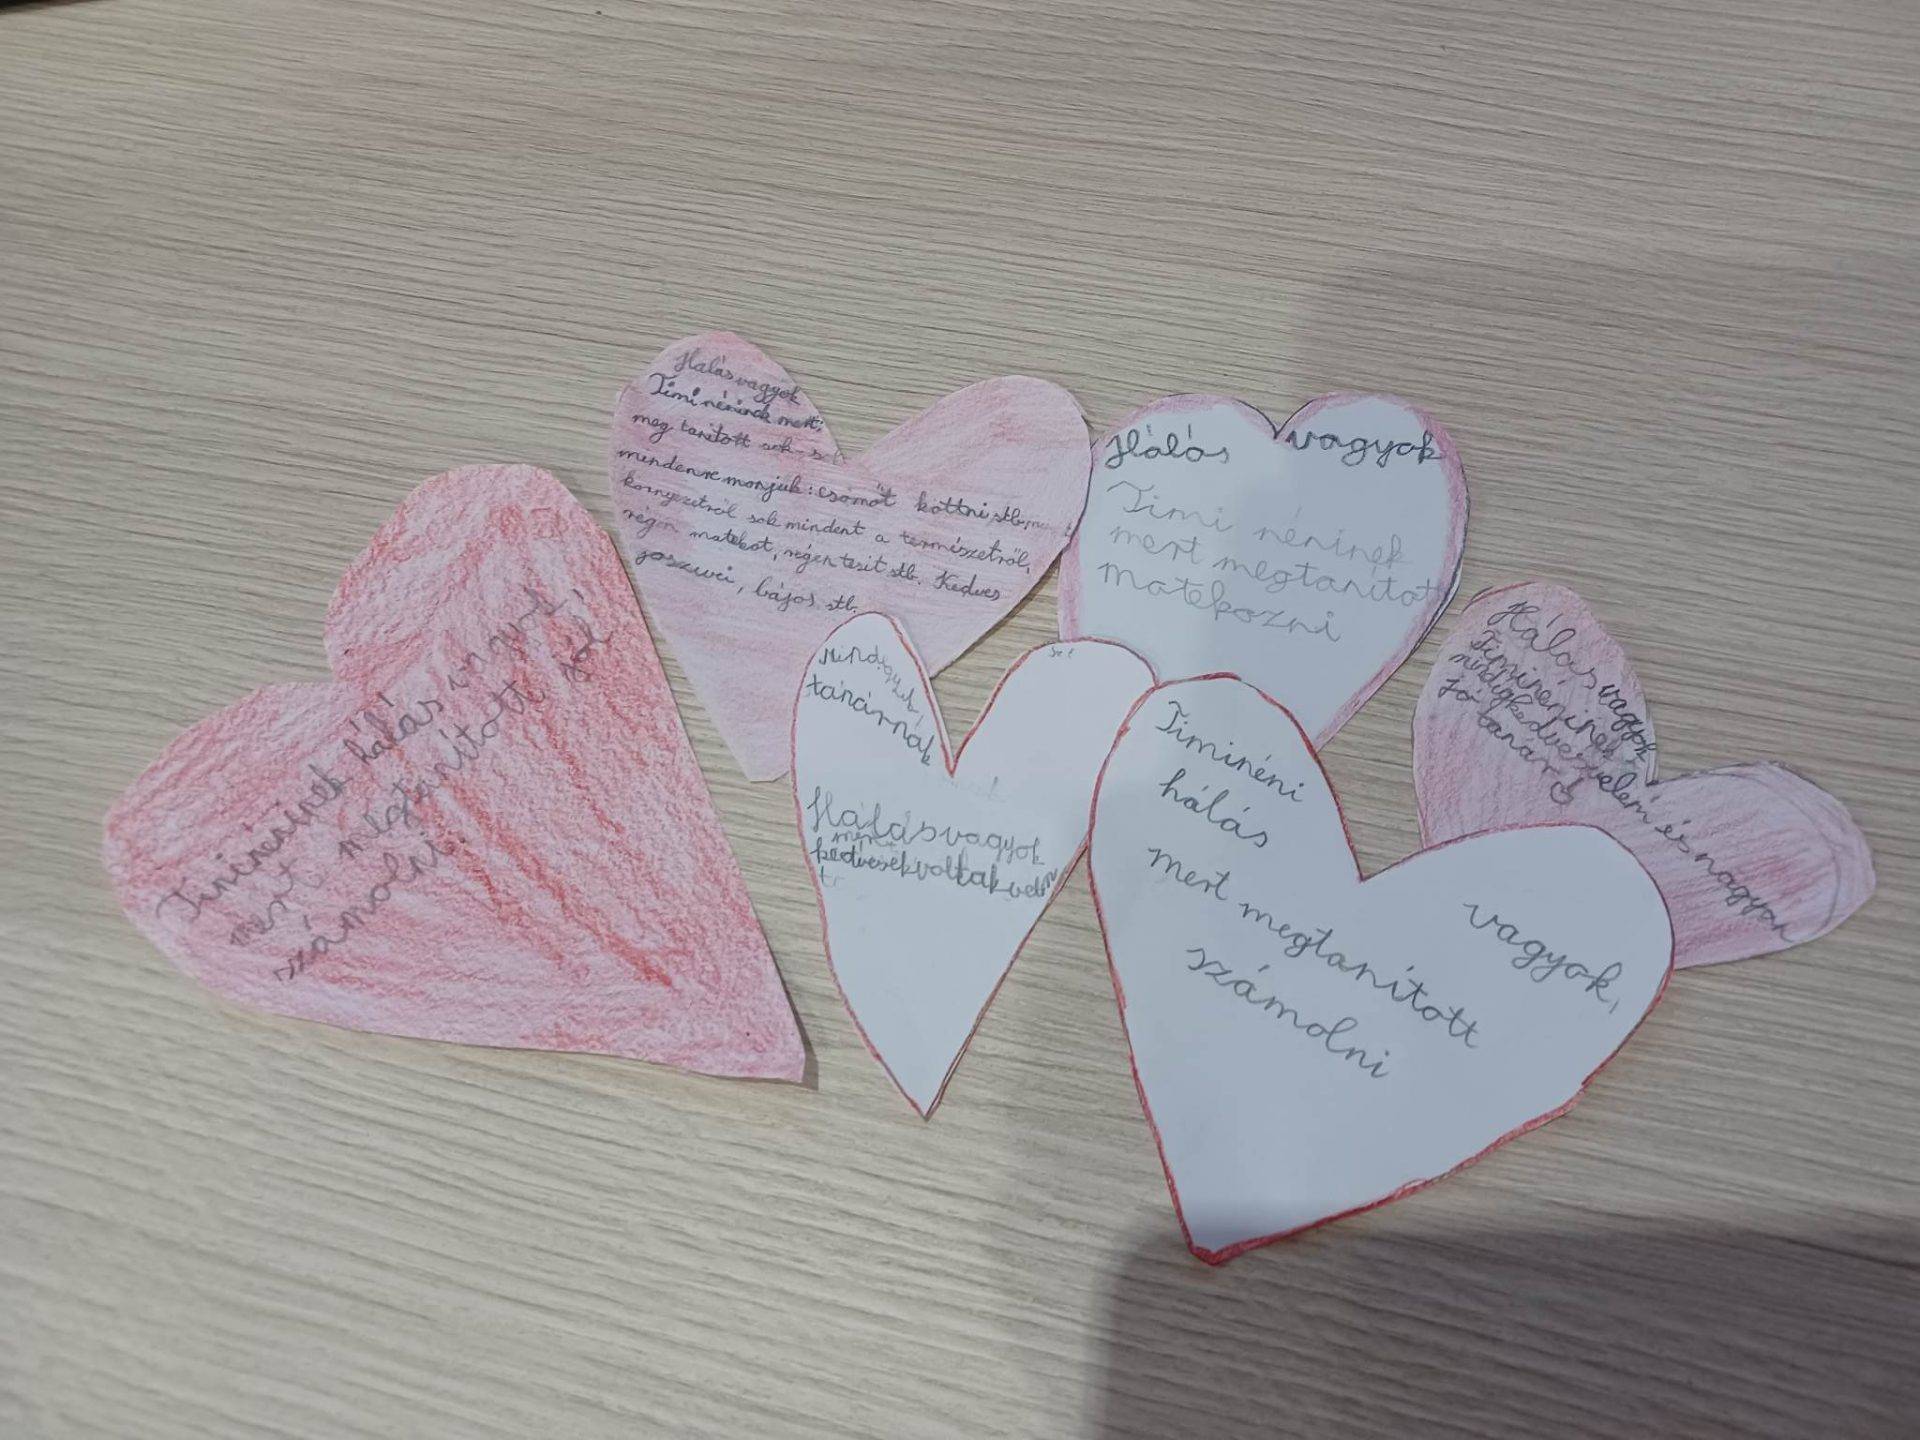 Timinéninek hálás vagyok,
mert megtanított jól
számolni.
Hálás vagyok
Timi néninek mert,
meg tanított sok
mindenre monjuk: csomót köttni stb,
környezetről sok mindent a természetről,
régen matekot, régen tesit stb. Kedves
jószívei, bájos stb.
Hálás vagyok
Timi néninek
mert megtanított
matekozni
tanárnak
Hálás vagyok
mert
kedvesek voltak velem
Timinéni
hálás
vagyok,
mert megtanított
számolni
Hálás vagyok
Timinéninek
mindig kedves velem és nagyon
jó tanár